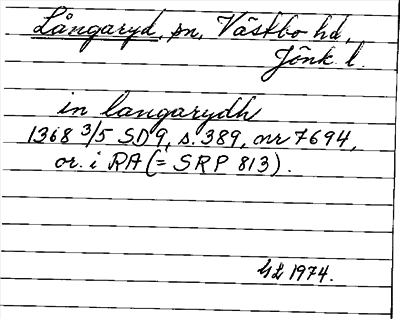 Långaryd, sn, Västbo hd,
Jönk. l.
in langarydh
1368 3/5 SD 9, s. 389, nr 7694,
or. i RA (= SRP 813).
GL 1974.